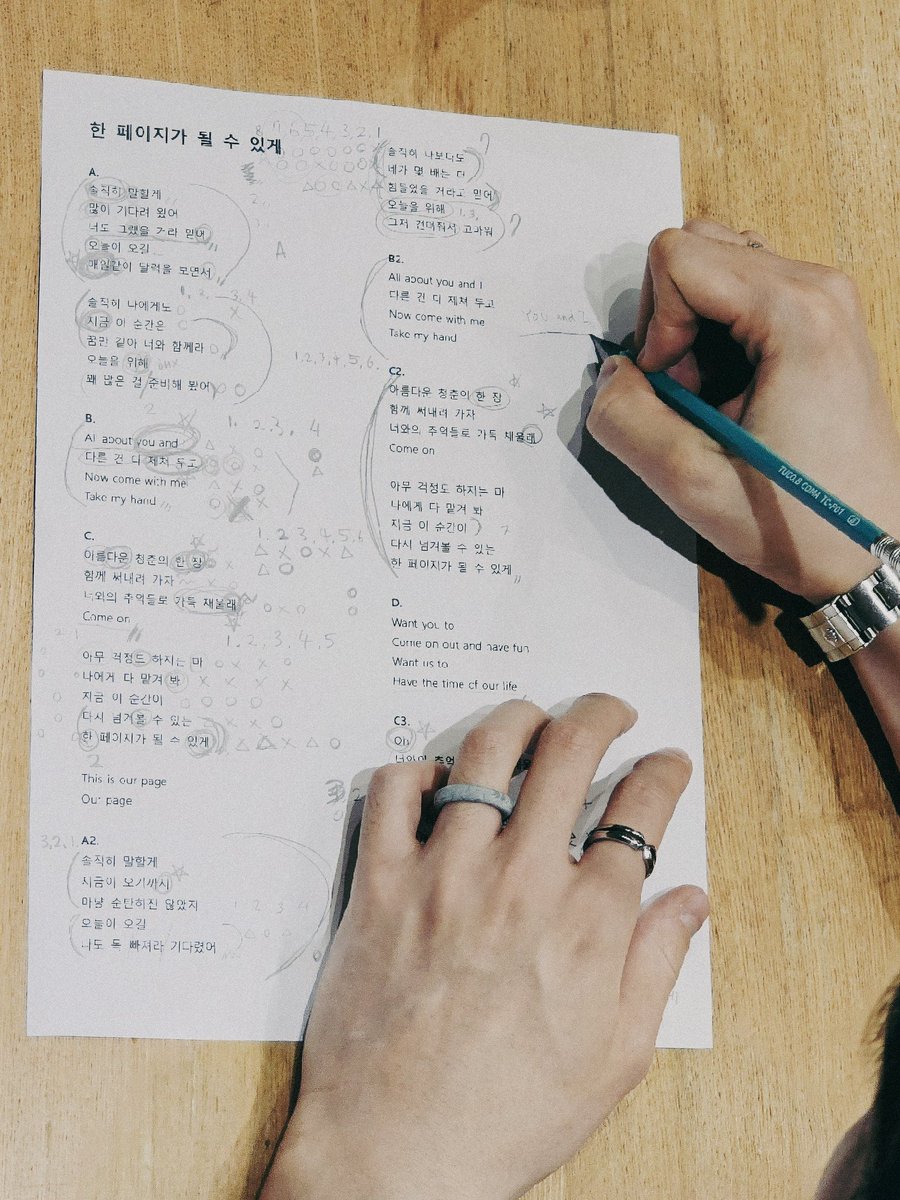 한 페이지가 될 수 있게
8, 7, 6, 5, 4, 3, 2, 1
A.
솔직히 말할게
많이 기다려 왔어
너도 그랬을 거라 믿어
오늘이 오길
매일같이 달력을 보면서
솔직히 나에게도
지금 이 순간은
꿈만 같아 너와 함께라
오늘을 위해
꽤 많은 걸 준비해 봤어
1, 2, 3, 4
A
1, 2, 3, 4, 5, 6
B.
All about you and
다른 건 다 제쳐 두고
Now come with me
Take my hand
1. 2. 3. 4
C.
아름다운 청춘의 한 장
함께 써내려 가자
너와의 추억들로 가득 채울래
Come on
1. 2 3, 4, 5, 6
아무 걱정도 하지는 마
나에게 다 맡겨 봐
지금 이 순간이
다시 넘겨볼 수 있는
한 페이지가 될 수 있게
1, 2, 3, 4, 5
2
This is our page
Our page
3, 2, 1
A2.
솔직히 말할게
지금이 오기까지
마냥 순탄하진 않았지
오늘이 오길
나도 목 빠져라 기다렸어
1 2, 3, 4
솔직히 나보다도
네가 몇 배는 더
힘들었을 거라고 믿어
오늘을 위해
1, 3,
그저 견뎌줘서 고마워
B2.
All about you and I
다른 건 다 제쳐 두고
Now come with me
Take my hand
You and I
C2.
아름다운 청춘의 한 장
함께 써내려 가자
너와의 추억들로 가득 채울래
Come on
아무 걱정도 하지는 마
나에게 다 맡겨 봐
지금 이 순간이
다시 넘겨볼 수 있는
한 페이지가 될 수 있게
D.
Want you to
Come on out and have fun
Want us to
Have the time of our life
C3.
Oh
너와의 추억
TUC0.8 COMA TC-P01